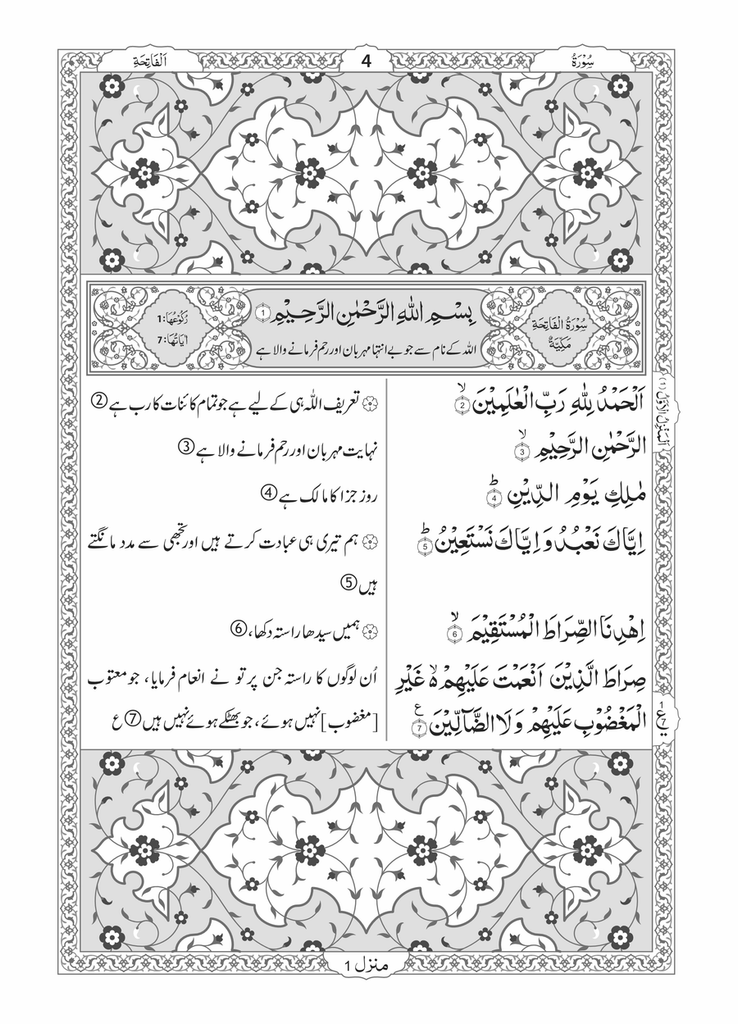 سُوْرَةُ
4
اَلْفَاتِحَة
سُوْرَةُ الْفَاتِحَةِ
مَكِّيَّةٌ
بِسْمِ اللّٰهِ الرَّحْمٰنِ الرَّحِيْمِ 1
اللہ کے نام سے جو بے انتہا مہربان اور رحم فرمانے والا ہے
رُكُوْعُهَا: 1
اٰيَاتُهَا: 7
اَلْحَمْدُ لِلّٰهِ رَبِّ الْعٰلَمِيْنَ ۙ 2
الرَّحْمٰنِ الرَّحِيْمِ ۙ 3
مٰلِكِ يَوْمِ الدِّيْنِ ؕ 4
اِيَّاكَ نَعْبُدُ وَ اِيَّاكَ نَسْتَعِيْنُ ؕ 5
اِهْدِنَا الصِّرَاطَ الْمُسْتَقِيْمَ ۙ 6
صِرَاطَ الَّذِيْنَ اَنْعَمْتَ عَلَيْهِمْ ۙ۬ غَيْرِ
الْمَغْضُوْبِ عَلَيْهِمْ وَ لَا الضَّآلِّيْنَ ع 7
تعریف اللہ ہی کے لیے ہے جو تمام کائنات کا رب ہے ②
نہایت مہربان اور رحم فرمانے والا ہے ③
روز جزا کا مالک ہے ④
ہم تیری ہی عبادت کرتے ہیں اور تجھی سے مدد مانگتے
ہیں ⑤
ہمیں سیدھا راستہ دکھا، ⑥
اُن لوگوں کا راستہ جن پر تو نے انعام فرمایا، جو معتوب
[مغضوب] نہیں ہوئے، جو بھٹکے ہوئے نہیں ہیں ⑦ ع
منزل 1